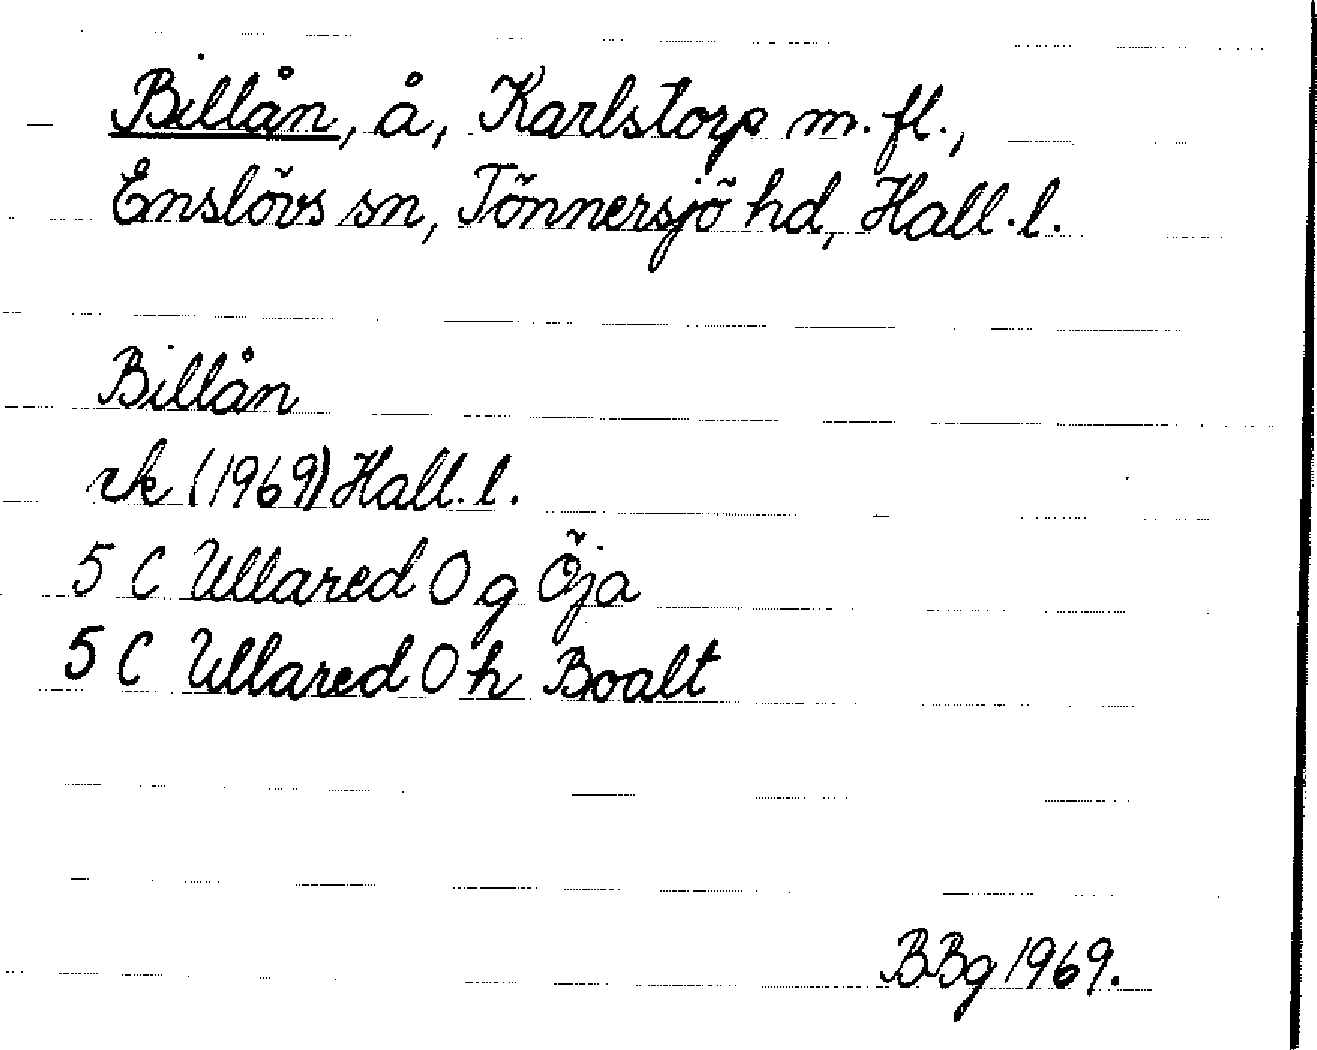 Billån, å, Karlstorp m. fl.,
Enslövs sn, Tönnersjö hd, Hall. l.
Billån
rk (1969) Hall. l.
5 C Ullared O g Öja
5 C Ullared O h Boalt
BBg 1969.